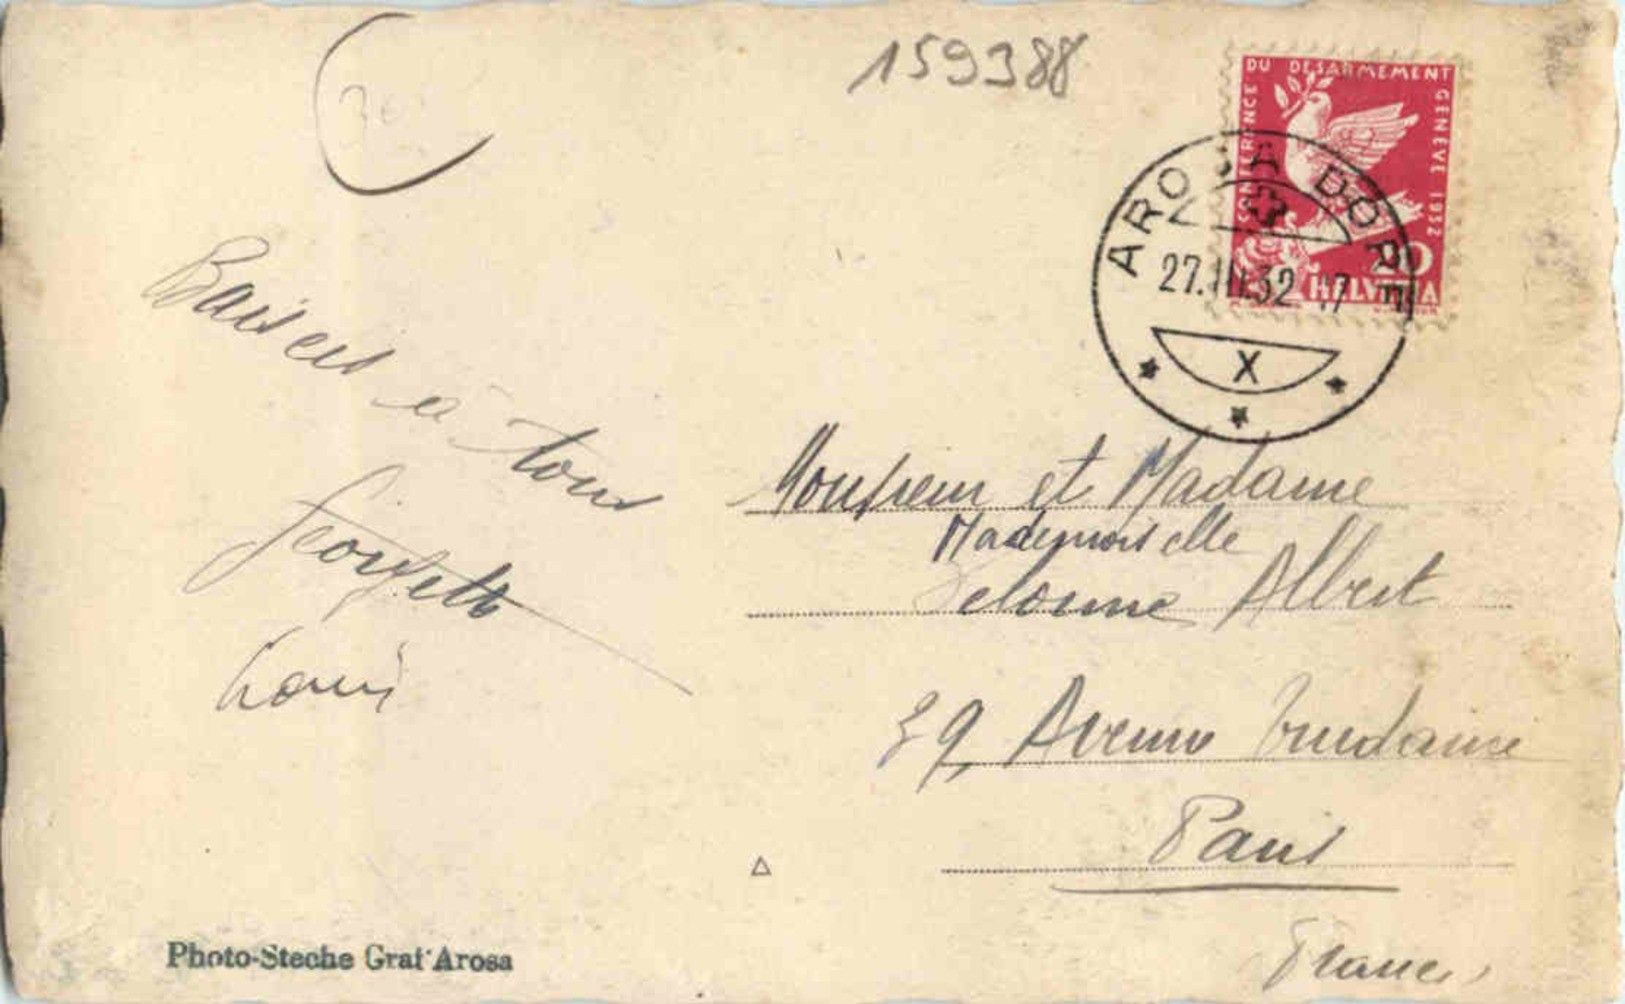 159388
CONFERENCE DU DESARMEMENT GENEVE 1932
20
HELVETIA
AROSA DORF
27.III.32. 17
X
Baisers à tous
Georgette
Louis
Monsieur et Madame
Mademoiselle
Albert
Avenue Trudaine
Paris
France
Photo-Steche Graf Arosa